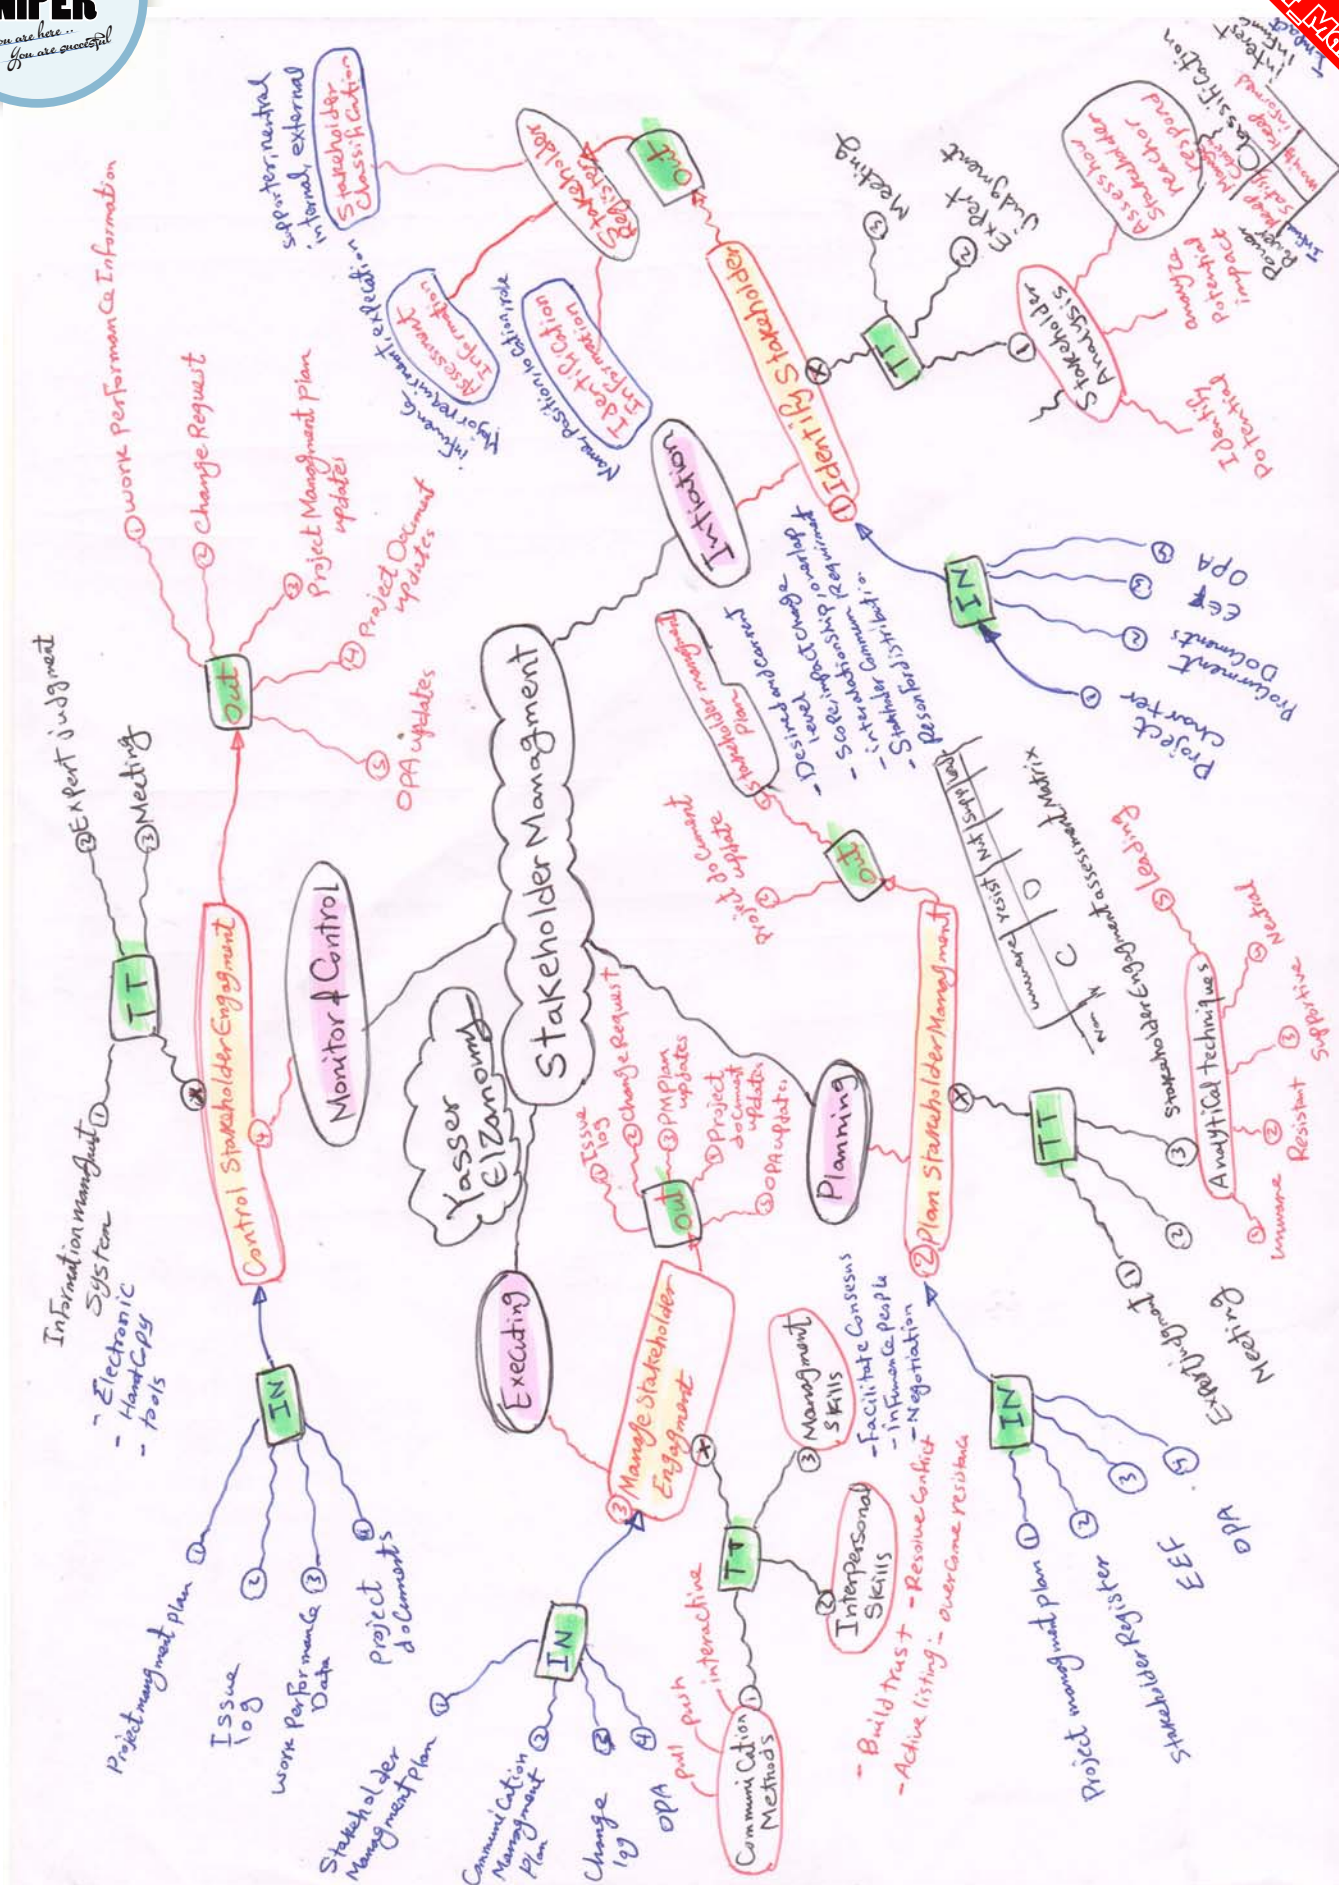 NIPER
You are here ..
You are succesful
Stakeholder Managment
Yasser
Elzanouny
Intiation
① Identify Stakeholder
IN
①
Project
Charter
②
Procurment
Documents
③
EEF
④
OPA
TT
①
Stakeholder
Analysis
Identify
Potential
analyze
Potential
impact
Assess how
Stakeholder
reach or
respond
Classification
②
Expert
Judgment
③ Meeting
Out
Stakeholder
Register
Identification
Information
Name, Position, location, role
Assessment
Information
Major requirment, expectation
influence
Stakeholder
Classification
Supporter, neutral
internal, external
Planning
② Plan Stakeholder Managment
IN
Project managment plan ①
Stakeholder Register ②
③
EEF
④
OPA
TT
Expert judgment ①
②
Meeting
③
Analytical techniques
① unaware
② Resistant
③ Supportive
④ Netral
⑤ Leading
Stakeholder Engagment assessment Matrix
C
O
Out
Stakeholder managment
Plan
- Desired and current
level
- Scope impact change
- interrelationship / overlap
- Stakholder Commun. Requirment
②
Project document
update
Executing
③ Manage Stakeholder
Engagment
IN
①
Stakeholder
Managment Plan
②
Communication
Managment
Plan
③
Change
log
④
OPA
TT
①
Communication
Methods
pull
push
interactive
②
Interpersonal
Skills
- Build trust
- Resolve Conflict
- Active listing
- overcome resistance
③ Managment
Skills
- Facilitate Consesus
- influence people
- Negotiation
Out
① Issue
log
② Change Request
③ PM Plan
updates
④ Project
document
updates
⑤ OPA updates
Monitor & Control
④
Control Stakeholder Engagment
IN
①
Project managment plan
②
Issue
log
③
work performance
Data
④
Project
documents
TT
①
Information managment
System
- Electronic
- Hard Copy
- tools
② Expert judgment
③ Meeting
Out
① work performance Information
② Change Request
③
Project Managment plan
updates
④ Project Document
updates
⑤
OPA updates